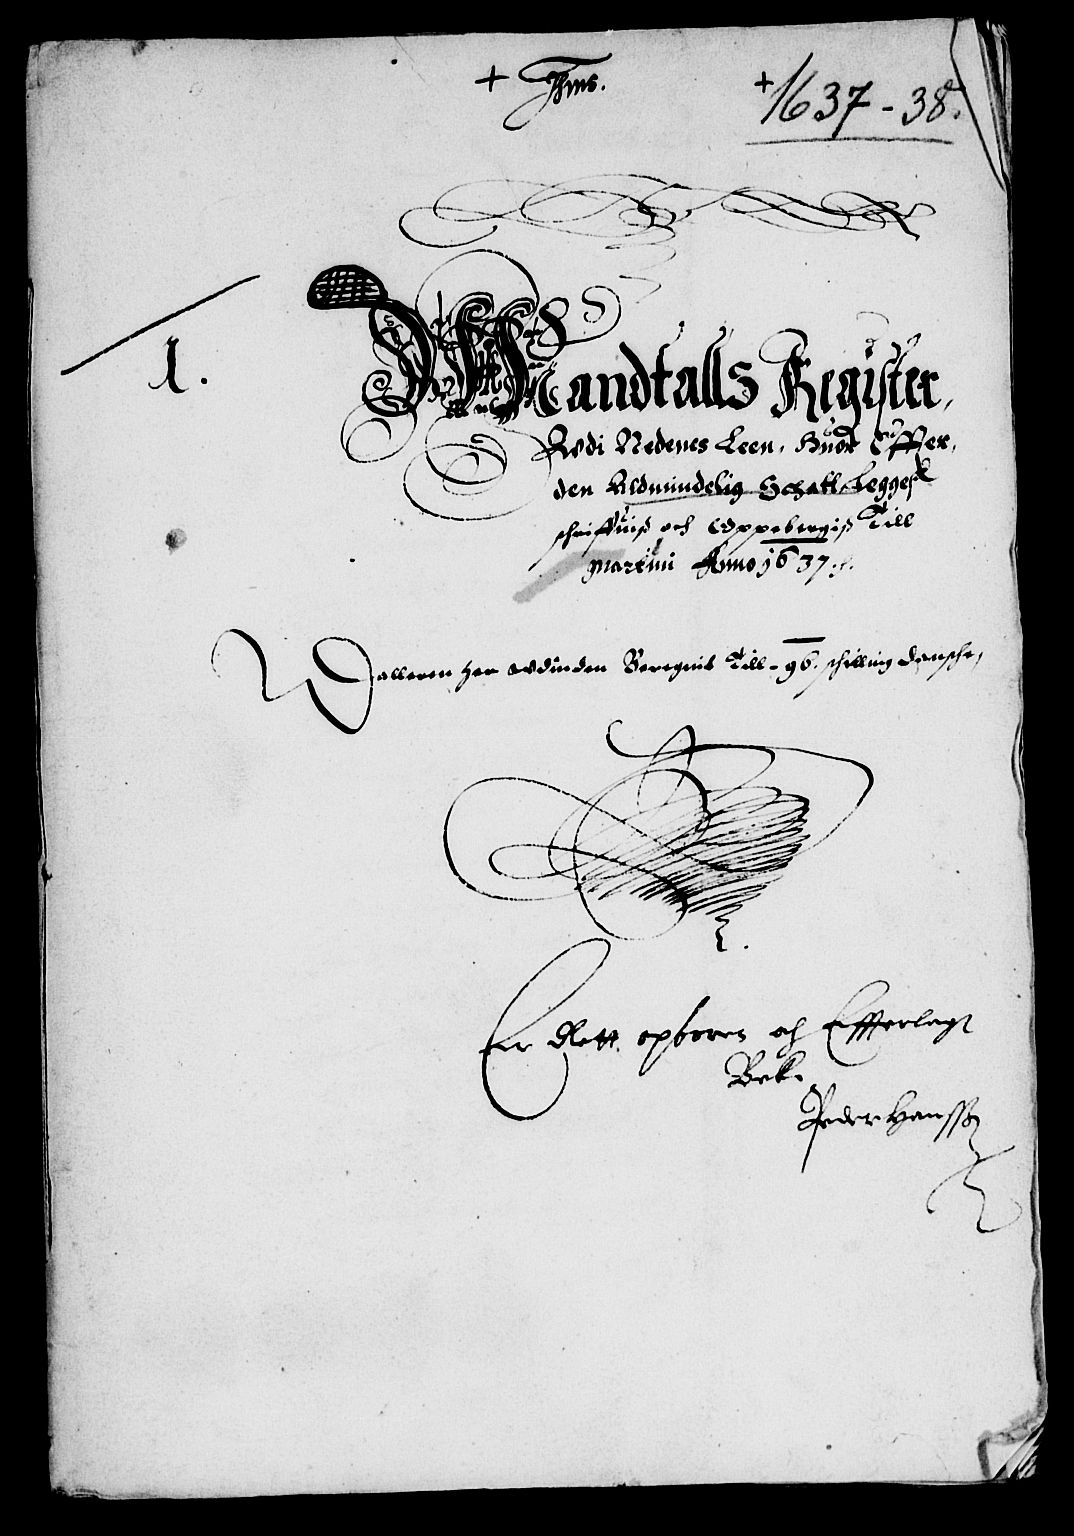 + Jhus.
+ 1637 - 38.
1.
Mandtalls Register,
Udi Nedenes Leen, Huor Effter,
den Allmindelig Schatt Legges
schriffuis och Oppebergis Till
Martini Anno 1637.
Dalleren her udinden Beregnit Till - 96. schilling Dansche,
Er Rett opboren och Effterlagt
Bek.
Peder Hanssen